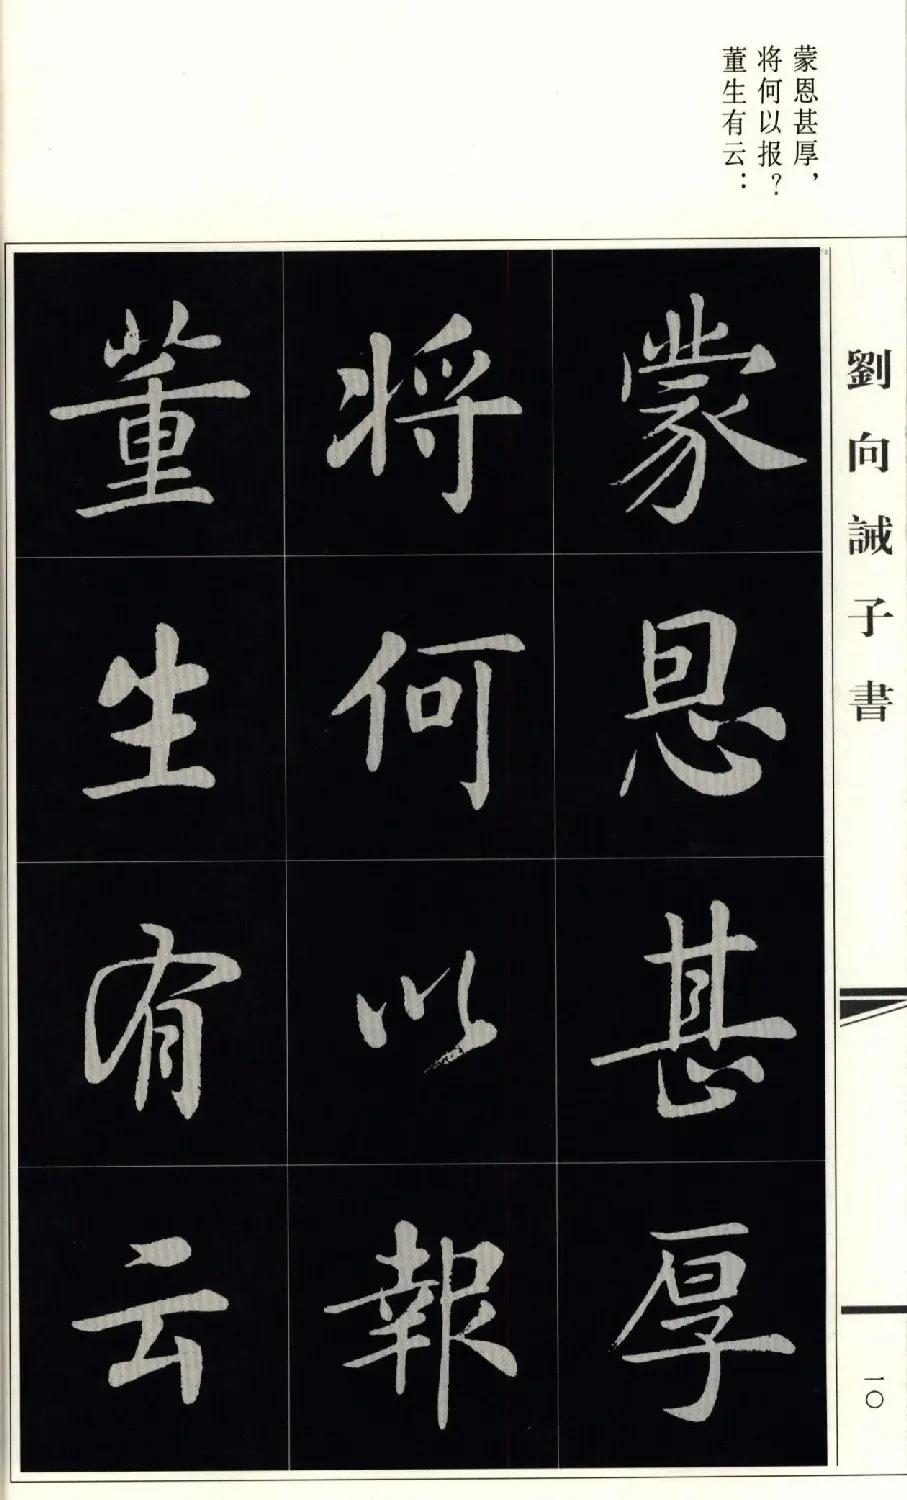 蒙恩甚厚，
将何以报？
董生有云：
劉向誡子書
蒙恩甚厚
将何以報
董生有云
一〇